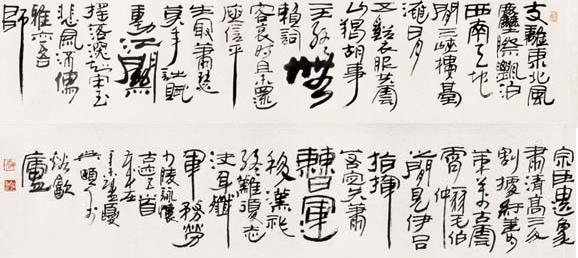 支離東北風
塵際飄泊
西南天地
間三峽樓臺
淹日月
五谿衣服共雲
山羯胡事
主終無
賴詞
客哀時且未還
庾信平
生最蕭瑟
莫年詩賦
動江關
搖落深知宋玉
悲風流儒
雅亦吾
師
宗臣遺象
肅清高三分
割據紆籌
策萬古雲
霄一羽毛伯
仲
間見伊呂
指揮
若定失蕭
曹運
移漢祚
終難復志
決身殲
軍務勞
少陵詠懷
古迹五首
廬